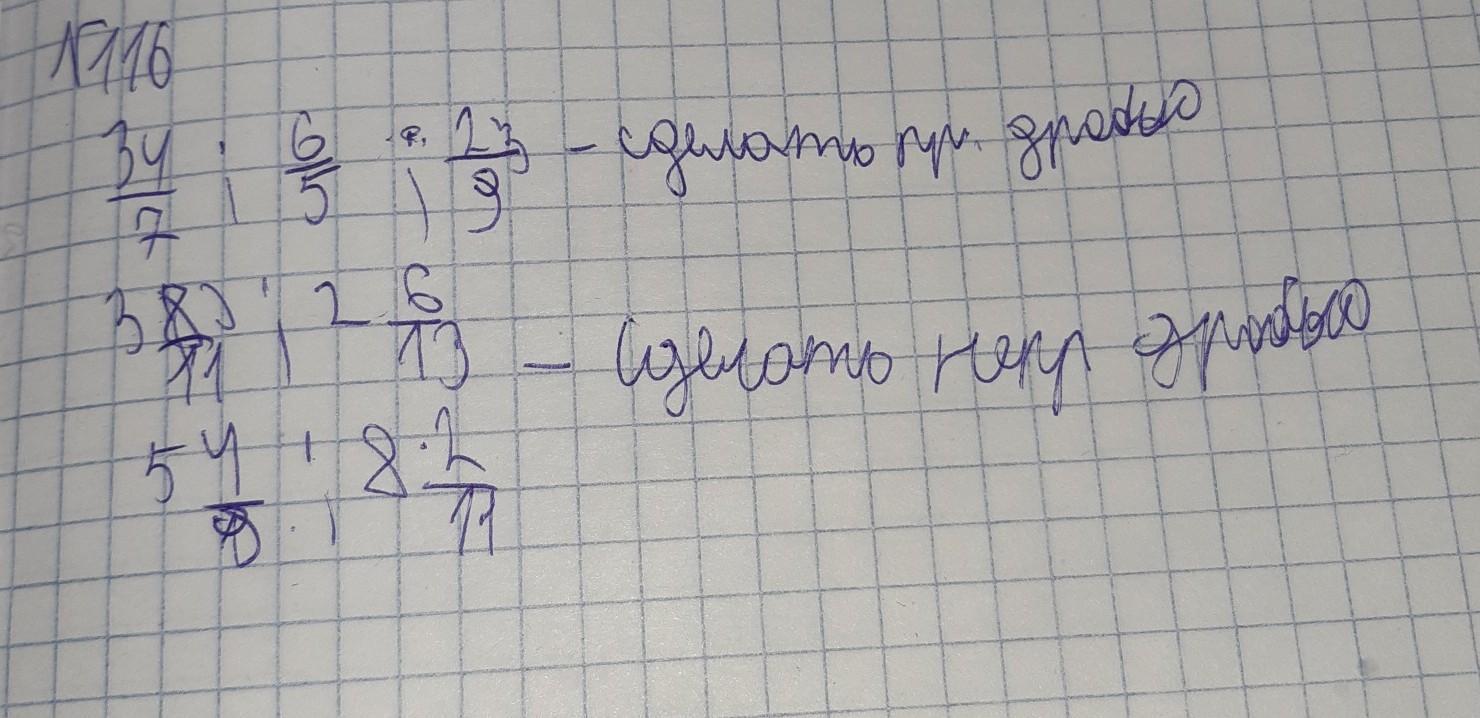 №116
34/7 ; 6/5 ; 23/9 – сделать пр. дробью
3 8/11 ; 2 6/13 – сделать непр дробью
5 4/9 ; 8 2/11